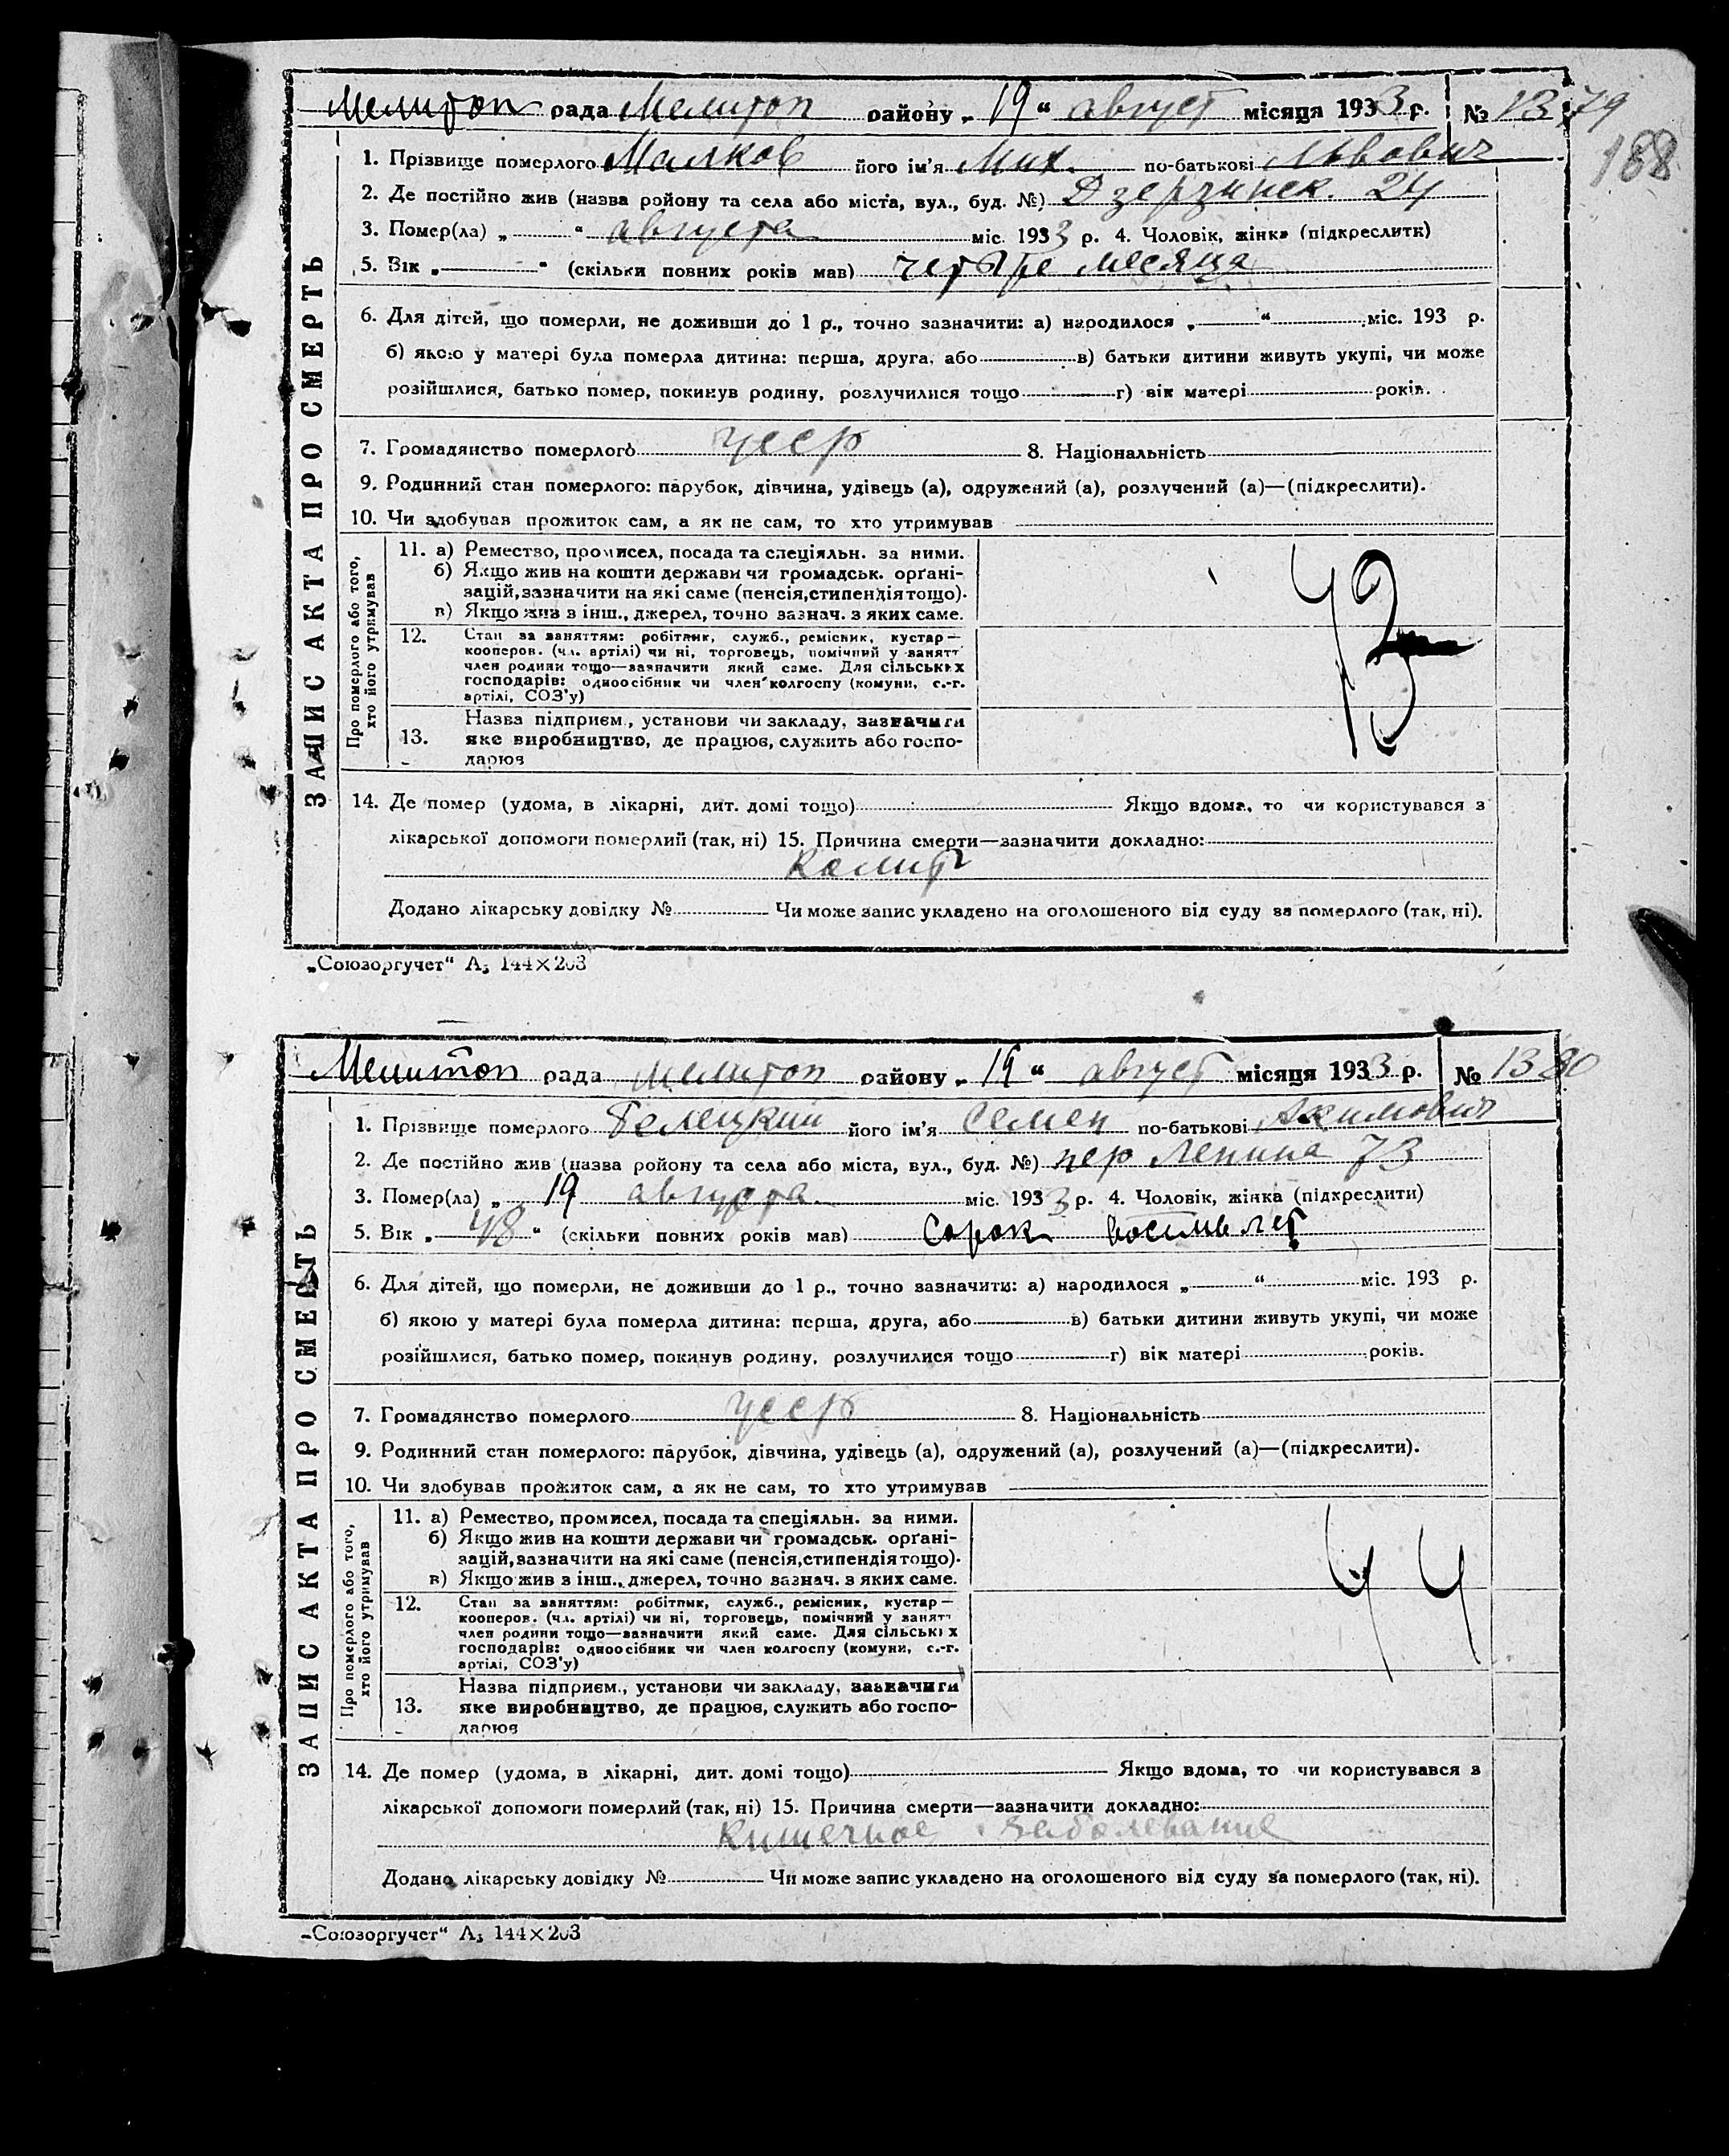 Мелитоп рада Мелитоп району „ 19 “ август місяця 1933 р. № 1379
188
1. Прізвище померлого Малков його ім'я Мих. по-батькові Львович
2. Де постійно жив (назва району та села або міста, вул., буд. №) Дзержинск. 24
3. Помер(ла) „ “ августа міс. 1933 р. 4. Чоловік, жінка (підкреслити)
5. Вік „ “ (скільки повних років мав) четыре месяца
6. Для дітей, що померли, не доживши до 1 р., точно зазначити: а) народилося „ “ міс. 193 р.
б) якою у матері була померла дитина: перша, друга, або в) батьки дитини живуть укупі, чи може
розійшлися, батько помер, покинув родину, розлучилися тощо г) вік матері років.
7. Громадянство померлого усср 8. Національність
9. Родинний стан померлого: парубок, дівчина, удівець (а), одружений (а), розлучений (а)—(підкреслити).
10. Чи здобував прожиток сам, а як не сам, то хто утримував
ЗАПИС АКТА ПРО СМЕРТЬ
Про померлого або того,
хто його утримував
11. а) Ремество, промисел, посада та спеціяльн. за ними.
б) Якщо жив на кошти держави чи громадськ. орґані-
зацій, зазначити на які саме (пенсія, стипендія тощо).
в) Якщо жив з інш., джерел, точно зазнач. з яких саме.
12. Стан за заняттям: робітник, служб., ремісник, кустар—
кооперов. (чл. артілі) чи ні, торговець, помічний у занятт
член родини тощо—зазначити який саме. Для сільських
господарів: одноосібник чи член колгоспу (комуни, с.-г.
артілі, СОЗ'у)
43
Назва підприєм., установи чи закладу, зазначити
13. яке виробництво, де працює, служить або госпо-
дарює
14. Де помер (удома, в лікарні, дит. домі тощо) Якщо вдома, то чи користувався з
лікарської допомоги померлий (так, ні) 15. Причина смерти—зазначити докладно:
Колит
Додано лікарську довідку № Чи може запис укладено на оголошеного від суду за померлого (так, ні).
„Союзоргучет“ А₅ 144×203
Мелитоп рада Мелитоп району „ 19 “ август місяця 1933 р. № 1380
1. Прізвище померлого Белецкий його ім'я Семен по-батькові Акимович
2. Де постійно жив (назва району та села або міста, вул., буд. №) пер Ленина 73
3. Помер(ла) „ 19 августа міс. 1933 р. 4. Чоловік, жінка (підкреслити)
5. Вік „ 48 “ (скільки повних років мав) Сорок восемь лет
6. Для дітей, що померли, не доживши до 1 р., точно зазначити: а) народилося „ “ міс. 193 р.
б) якою у матері була померла дитина: перша, друга, або в) батьки дитини живуть укупі, чи може
розійшлися, батько помер, покинув родину, розлучилися тощо г) вік матері років.
7. Громадянство померлого усср 8. Національність
9. Родинний стан померлого: парубок, дівчина, удівець (а), одружений (а), розлучений (а)—(підкреслити).
10. Чи здобував прожиток сам, а як не сам, то хто утримував
ЗАПИС АКТА ПРО СМЕРТЬ
Про померлого або того,
хто його утримував
11. а) Ремество, промисел, посада та спеціяльн. за ними.
б) Якщо жив на кошти держави чи громадськ. орґані-
зацій, зазначити на які саме (пенсія, стипендія тощо).
в) Якщо жив з інш., джерел, точно зазнач. з яких саме.
12. Стан за заняттям: робітник, служб., ремісник, кустар—
кооперов. (чл. артілі) чи ні, торговець, помічний у занятт
член родини тощо—зазначити який саме. Для сільських
господарів: одноосібник чи член колгоспу (комуни, с.-г.
артілі, СОЗ'у)
44
Назва підприєм., установи чи закладу, зазначити
13. яке виробництво, де працює, служить або госпо-
дарює
14. Де помер (удома, в лікарні, дит. домі тощо) Якщо вдома, то чи користувався з
лікарської допомоги померлий (так, ні) 15. Причина смерти—зазначити докладно:
Кишечное заболевание
Додано лікарську довідку № Чи може запис укладено на оголошеного від суду за померлого (так, ні).
„Союзоргучет“ А₅ 144×203